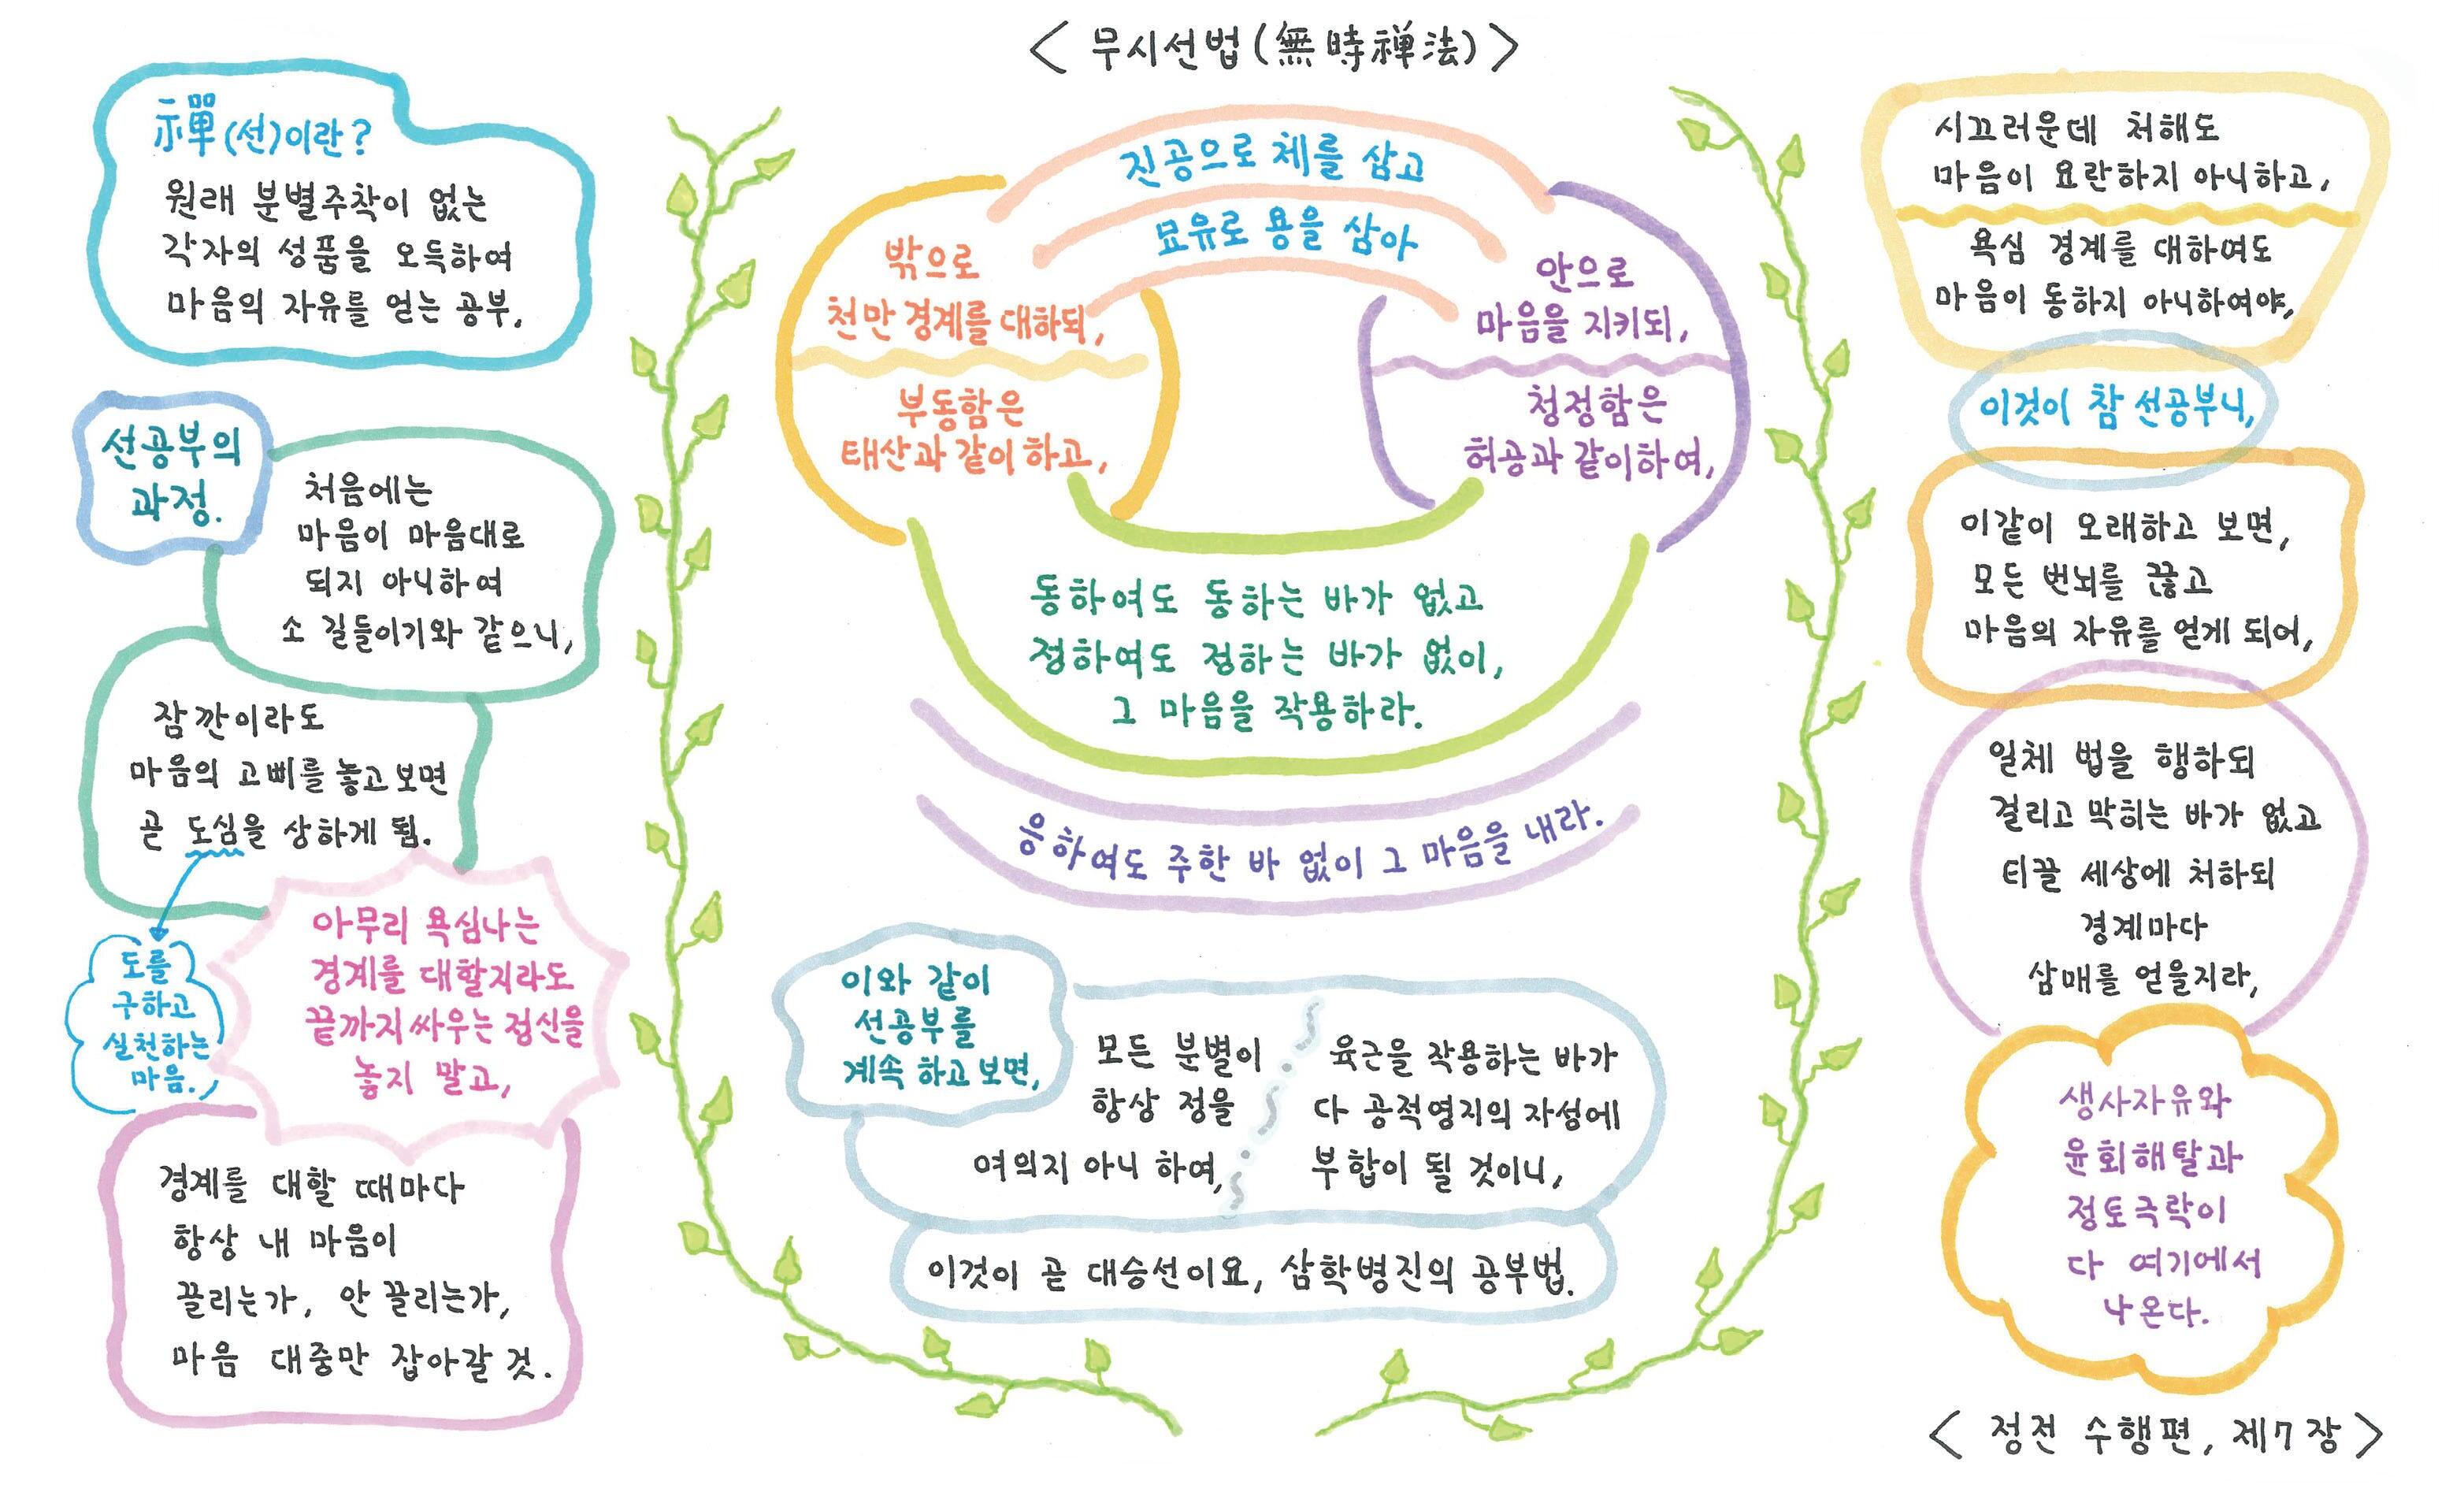 < 무시선법(無時禅法) >
禪(선)이란?
원래 분별주착이 없는
각자의 성품을 오득하여
마음의 자유를 얻는 공부.
선공부의
과정.
처음에는
마음이 마음대로
되지 아니하여
소 길들이기와 같으니,
잠깐이라도
마음의 고삐를 놓고 보면
곧 도심을 상하게 됨.
도를
구하고
실천하는
마음.
아무리 욕심나는
경계를 대할지라도
끝까지 싸우는 정신을
놓지 말고,
경계를 대할 때마다
항상 내 마음이
끌리는가, 안 끌리는가,
마음 대중만 잡아갈 것.
진공으로 체를 삼고
묘유로 용을 삼아
밖으로
천만 경계를 대하되,
부동함은
태산과 같이 하고,
안으로
마음을 지키되,
청정함은
허공과 같이하여,
동하여도 동하는 바가 없고
정하여도 정하는 바가 없이,
그 마음을 작용하라.
응하여도 주한 바 없이 그 마음을 내라.
이와 같이
선공부를
계속 하고 보면,
모든 분별이
항상 정을
여의지 아니 하여,
육근을 작용하는 바가
다 공적영지의 자성에
부합이 될 것이니,
이것이 곧 대승선이요, 삼학병진의 공부법.
시끄러운데 처해도
마음이 요란하지 아니하고,
욕심 경계를 대하여도
마음이 동하지 아니하여야,
이것이 참 선공부니,
이같이 오래하고 보면,
모든 번뇌를 끊고
마음의 자유를 얻게 되어,
일체 법을 행하되
걸리고 막히는 바가 없고
티끌 세상에 처하되
경계마다
삼매를 얻을지라,
생사자유와
윤회해탈과
정토극락이
다 여기에서
나온다.
< 정전 수행편, 제7장 >